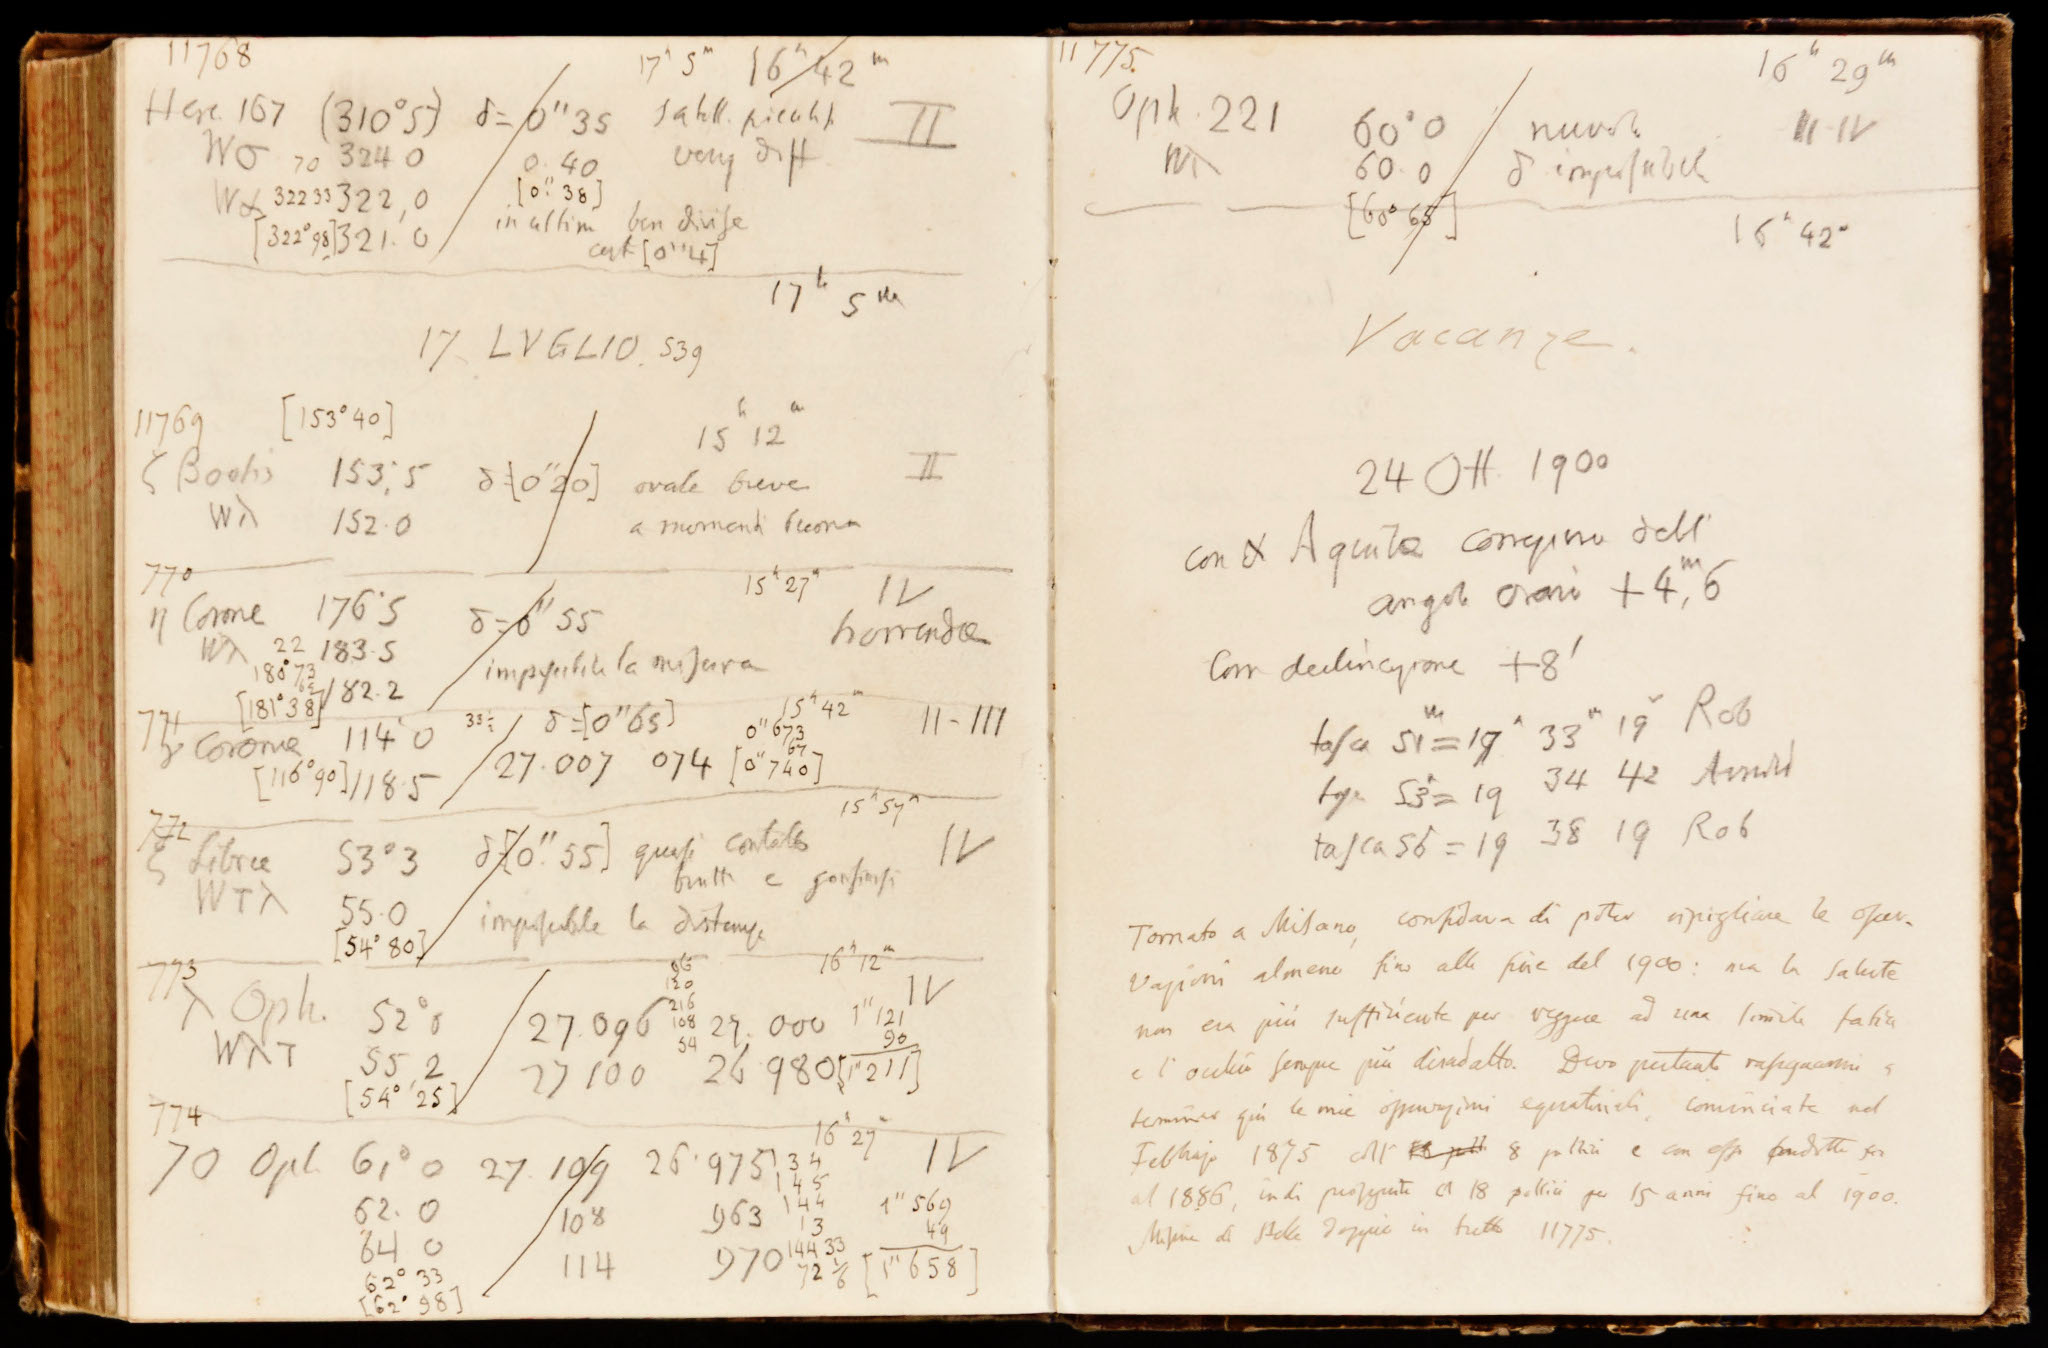 11768
17ʰ 5ᵐ 16ʰ 42ᵐ
Herc. 167 (310°5) δ = 0"35 satell. II
Wσ 70 324 0 0.40 very diff
Wα 322 33 322,0 [0".38]
[322°98] 321.0 in ultim ben divise
[0"4]
17ʰ 5ᵐ
17 LVGLIO. 539
11769 [153°40] 15ʰ 12ᵐ
ζ Bootis 153°,5 δ=[0"20] ovale breve II
Wλ 152.0 a momenti buona
770 15ʰ 27ᵐ IV
η Coronæ 176°5 δ=0"55 horrenda
Wλ 22 183.5 impossibile la misura
180°73
[181°38] 182.2
771 15ʰ 42ᵐ
γ Coronæ 114°0 δ=[0"65] 0"673 II-III
67
[116°90] 118.5 27.007 074 [0"740]
772 15ʰ 57ᵐ
ξ Libræ 53°3 δ=[0".55] quasi contatto IV
WTλ 55.0 brutte e gonfiussi
[54°80] impossibile la distanza
773 16ʰ 12ᵐ
96
120
λ Oph. 52°0 27.096 216 27.000 1"121 IV
108
54 90
WλT 55,2 27 100 26 980 [1"211]
[54° 25]
774 16ʰ 27ᵐ
70 Oph 61°0 27.109 26.975 134 IV
145
62.0 108 963 144 1"569
13 49
64 0 114 970 144 33 [1"658]
62° 33 72 1/6
[62° 98]
11775. 16ʰ 29ᵐ
Oph. 221 60°0 nuvole II-IV
Wλ 60.0 δ impossibile
[60° 65]
16ʰ 42ᵐ
Vacanze.
24 Ott. 1900
con α Aquilæ correzione dell'
angolo orario +4ᵐ,6
Corr declinazione +8'
tasca 51 = 19ʰ 33ᵐ 19ˢ Rob
tasca 53 = 19 34 42 Arnold
tasca 56 = 19 38 19 Rob
Tornato a Milano, confidava di poter ripigliare le osser-
vazioni almeno fino alla fine del 1900: ma la salute
non era più sufficiente per reggere ad una simile fatica
e l'occhio sempre più disadatto. Devo pertanto rassegnarmi a
terminar qui le mie osservazioni equatoriali, cominciate nel
Febbrajo 1875 coll' 8 pollici e con esso condotte fino
al 1886, indi proseguite al 18 pollici per 15 anni fino al 1900.
Misure di Stelle doppie in tutto 11775.